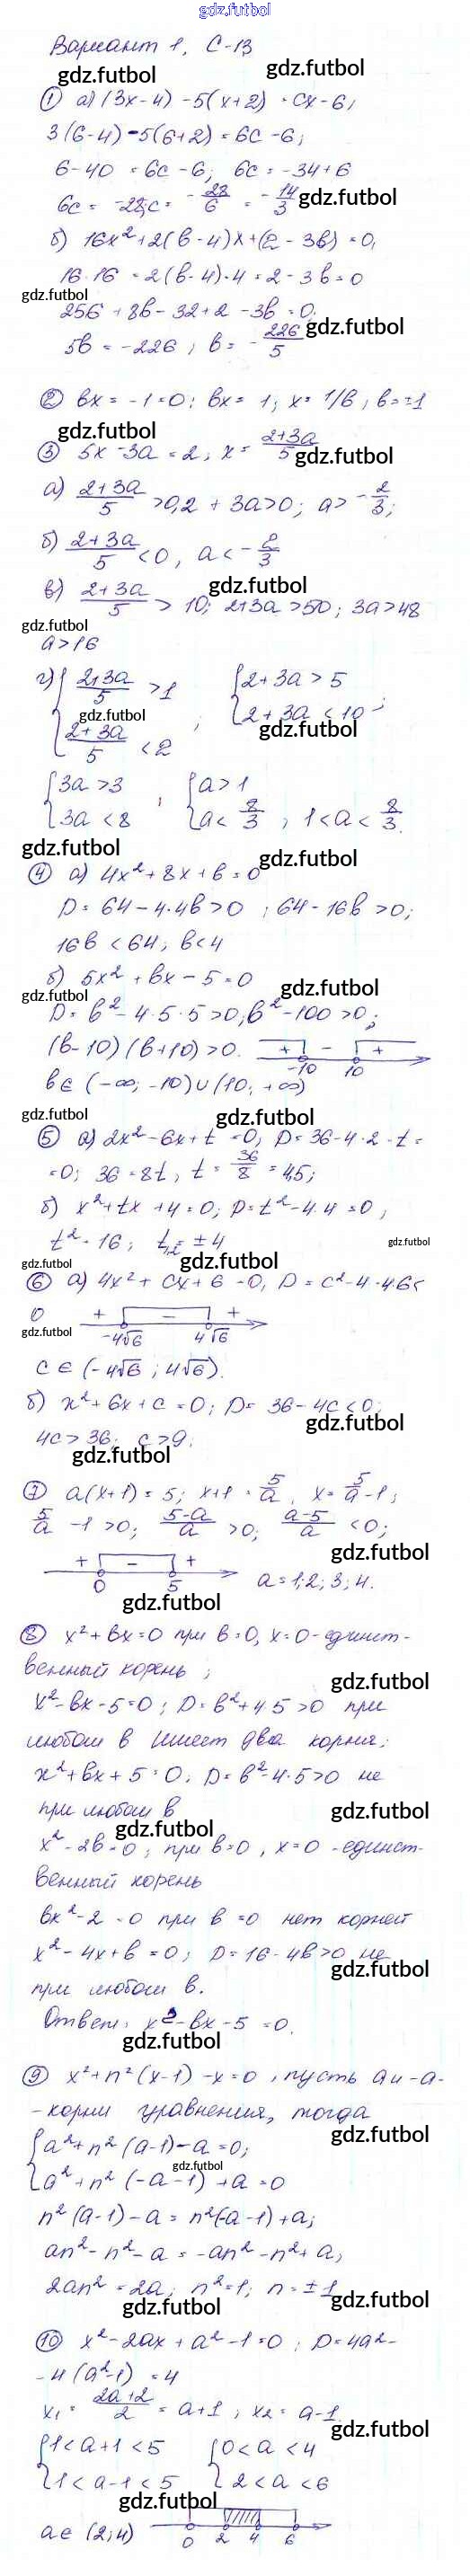 gdz.futbol
Вариант 1, С-13
gdz.futbol gdz.futbol
① а) (3x-4) -5(x+2) = cx-6,
3(6-4) -5(6+2) = 6c -6;
6-40 = 6c -6; 6c = -34+6
6c = -28; c = -28/6 = -14/3 gdz.futbol
б) 16x²+2(b-4)x+(2-3b) = 0,
16·16 = 2(b-4)·4 = 2-3b = 0
gdz.futbol
256 + 8b - 32+2 -3b = 0;
5b = -226; b = -226/5 gdz.futbol
② bx = -1=0; bx = 1; x = 1/b; b = ±1
gdz.futbol
③ 5x -3a = 2, x = (2+3a)/5 gdz.futbol
а) (2+3a)/5 >0, 2 + 3a>0; a> -2/3;
б) (2+3a)/5 <0, a < -2/3
gdz.futbol
в) (2+3a)/5 > 10; 2+3a >50; 3a>48
gdz.futbol
a>16
г) { (2+3a)/5 >1 { 2+3a > 5
gdz.futbol
{ (2+3a)/5 <2 ; { 2+3a <10 ;
gdz.futbol
{ 3a >3 { a>1
{ 3a <8 ; { a< 8/3 , 1<a< 8/3.
gdz.futbol gdz.futbol
④ а) 4x²+8x+b=0
D = 64-4·4b>0 ; 64-16b >0;
16b <64; b<4
б) 5x² +bx -5=0
gdz.futbol gdz.futbol
D = b²-4·5·5>0; b²-100>0;
(b-10)(b+10)>0. + - + -10 10
b∈ (-∞; -10)∪(10; +∞)
gdz.futbol gdz.futbol
⑤ а) 2x²-6x+t =0; D=36-4·2·t =
=0; 36=8t, t = 36/8 = 4,5;
б) x²+tx+4=0; D=t²-4·4=0;
t²=16; t₁,₂ = ±4
gdz.futbol
gdz.futbol gdz.futbol
⑥ а) 4x²+cx+6=0, D=c²-4·4·6<
0 + - + -4√6 4√6
gdz.futbol
c∈(-4√6; 4√6).
б) x²+6x+c=0; D=36-4c<0;
gdz.futbol
4c>36; c>9;
gdz.futbol
⑦ a(x+1)=5; x+1=5/a, x=5/a-1;
5/a -1>0; (5-a)/a >0; (a-5)/a <0;
gdz.futbol
+ - + 0 5 a=1;2;3;4.
gdz.futbol
⑧ x²+bx=0 при b=0, x=0-единст-
венный корень ;
gdz.futbol
x²-bx-5=0; D=b²+4·5>0 при
любом b имеет два корня;
x²+bx+5=0; D=b²-4·5>0 не
при любом b
gdz.futbol
gdz.futbol
x²-2b=0; при b=0, x=0 -единст-
венный корень
bx²-2=0 при b=0 нет корней
x²-4x+b=0; D=16-4b>0 не
gdz.futbol
при любом b.
Ответ: x²-bx-5=0.
gdz.futbol
⑨ x²+n²(x-1)-x=0, пусть a и -a-
-корни уравнения, тогда
gdz.futbol
{ a²+n²(a-1)-a=0;
gdz.futbol
{ a²+n²(-a-1)+a=0
n²(a-1)-a = n²(-a-1)+a;
an²-n²-a = -an²-n²+a;
2an²=2a; n²=1; n=±1
gdz.futbol gdz.futbol
⑩ x²-2ax+a²-1=0; D=4a²-
-4(a²-1)=4
x₁ = (2a+2)/2 = a+1, x₂ = a-1
gdz.futbol
{ 1<a+1<5 { 0<a<4
{ 1<a-1<5 { 2<a<6
gdz.futbol
a∈(2;4) 0 2 4 6